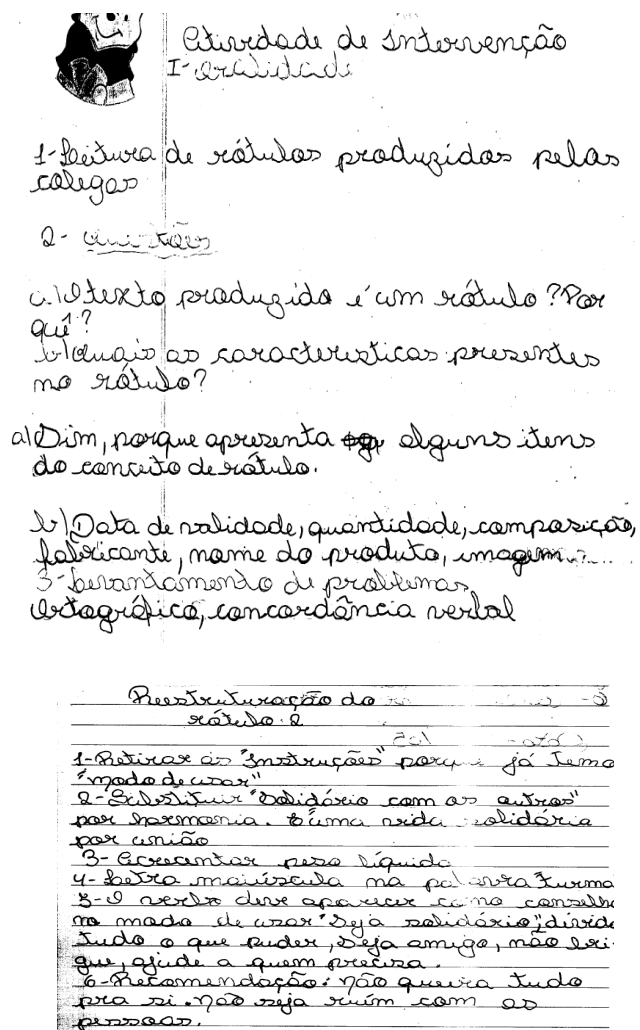 Atividade de Intervenção
I-oralidade
1-Leitura de rótulos produzidos pelos
colegas
2- Questões
a) O texto produzido é um rótulo? Por
quê?
b) Quais as características presentes
no rótulo?
a) Sim, porque apresenta alguns itens
do conceito de rótulo.
b) Data de validade, quantidade, composição,
fabricante, nome do produto, imagem...
3-Levantamento de problemas
Ortográfico, concordância verbal
Reestruturação do
rótulo 2
1-Retirar as "Instruções" porque já temo
"modo de usar"
2-Substituir "Solidário com os outros"
por harmonia. E uma vida solidária
por união
3- Acrecentar peso líquido
4-Letra maiúscula na palavra Turma
5-O verbo deve aparecer como conselho
no modo de usar "Seja solidário", divida
tudo o que puder, seja amigo, não bri-
gue, ajude a quem precisa.
6-Recomendação: não queira tudo
pra si. não seja ruím com as
pessoas.